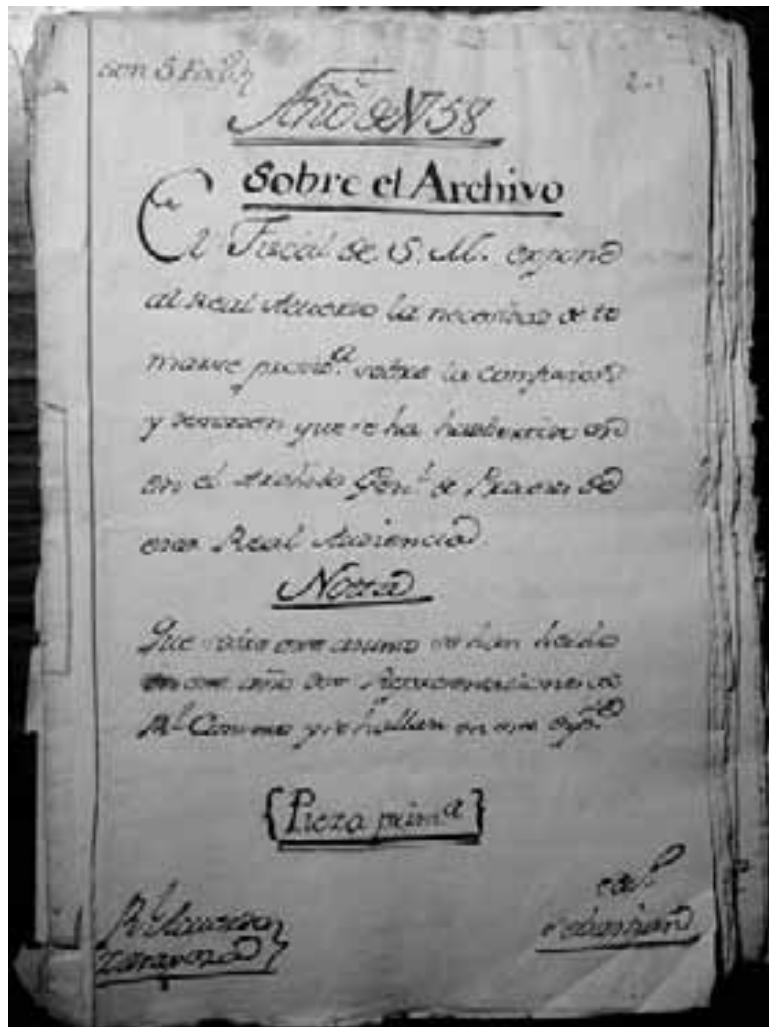 son 5 
Año de 1758
Sobre el Archivo
El Fiscal de S. M. expone
al Real Acuerdo la necesidad de to
marse provid.ª sobre la confusion
y desorden que se ha
en el Archivo Gen.l de de
esta Real Audiencia.
Notta
Que sobre este asunto se han hecho
en este año dos Representaciones
Rl. y se hallan en este Exp.te
{Pieza prim.ª}
Rl. Acuerdo
Zaragoza
Sebastian